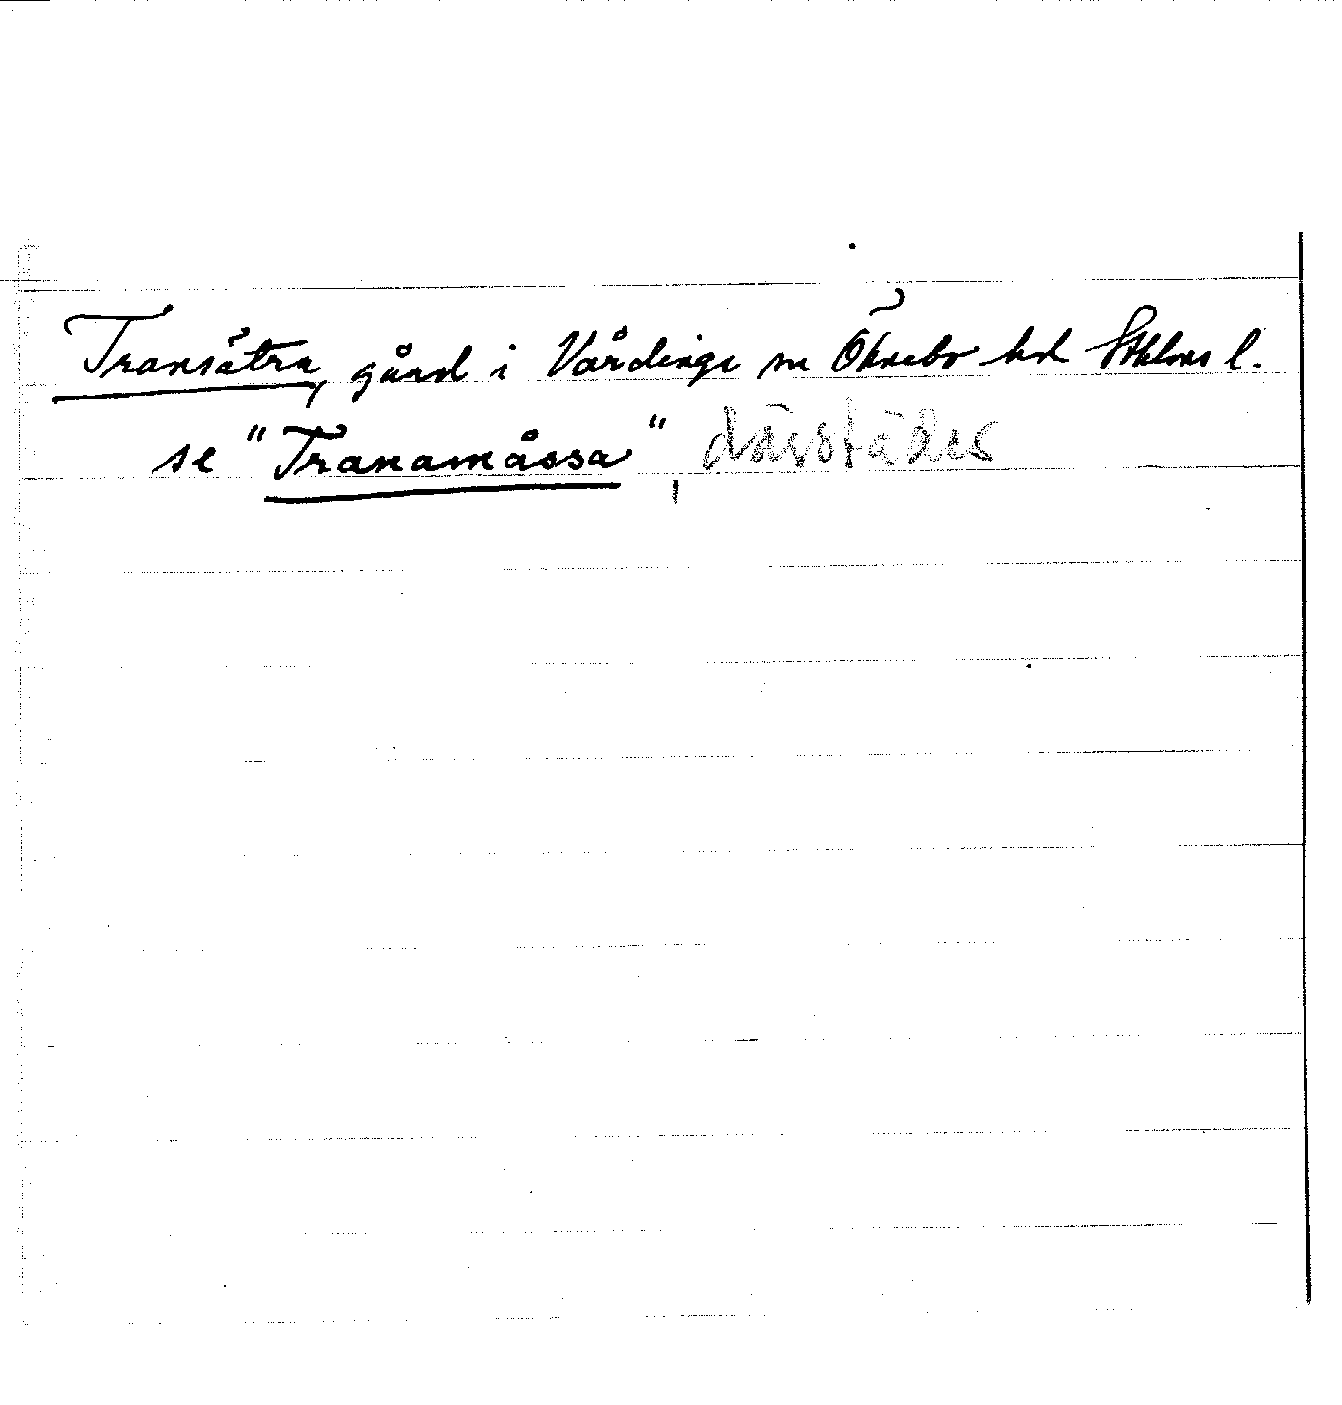 Transätra, gård i Vårdinge sn Öknebo hd Sthlms l.
se "Tranamåssa" därstädes